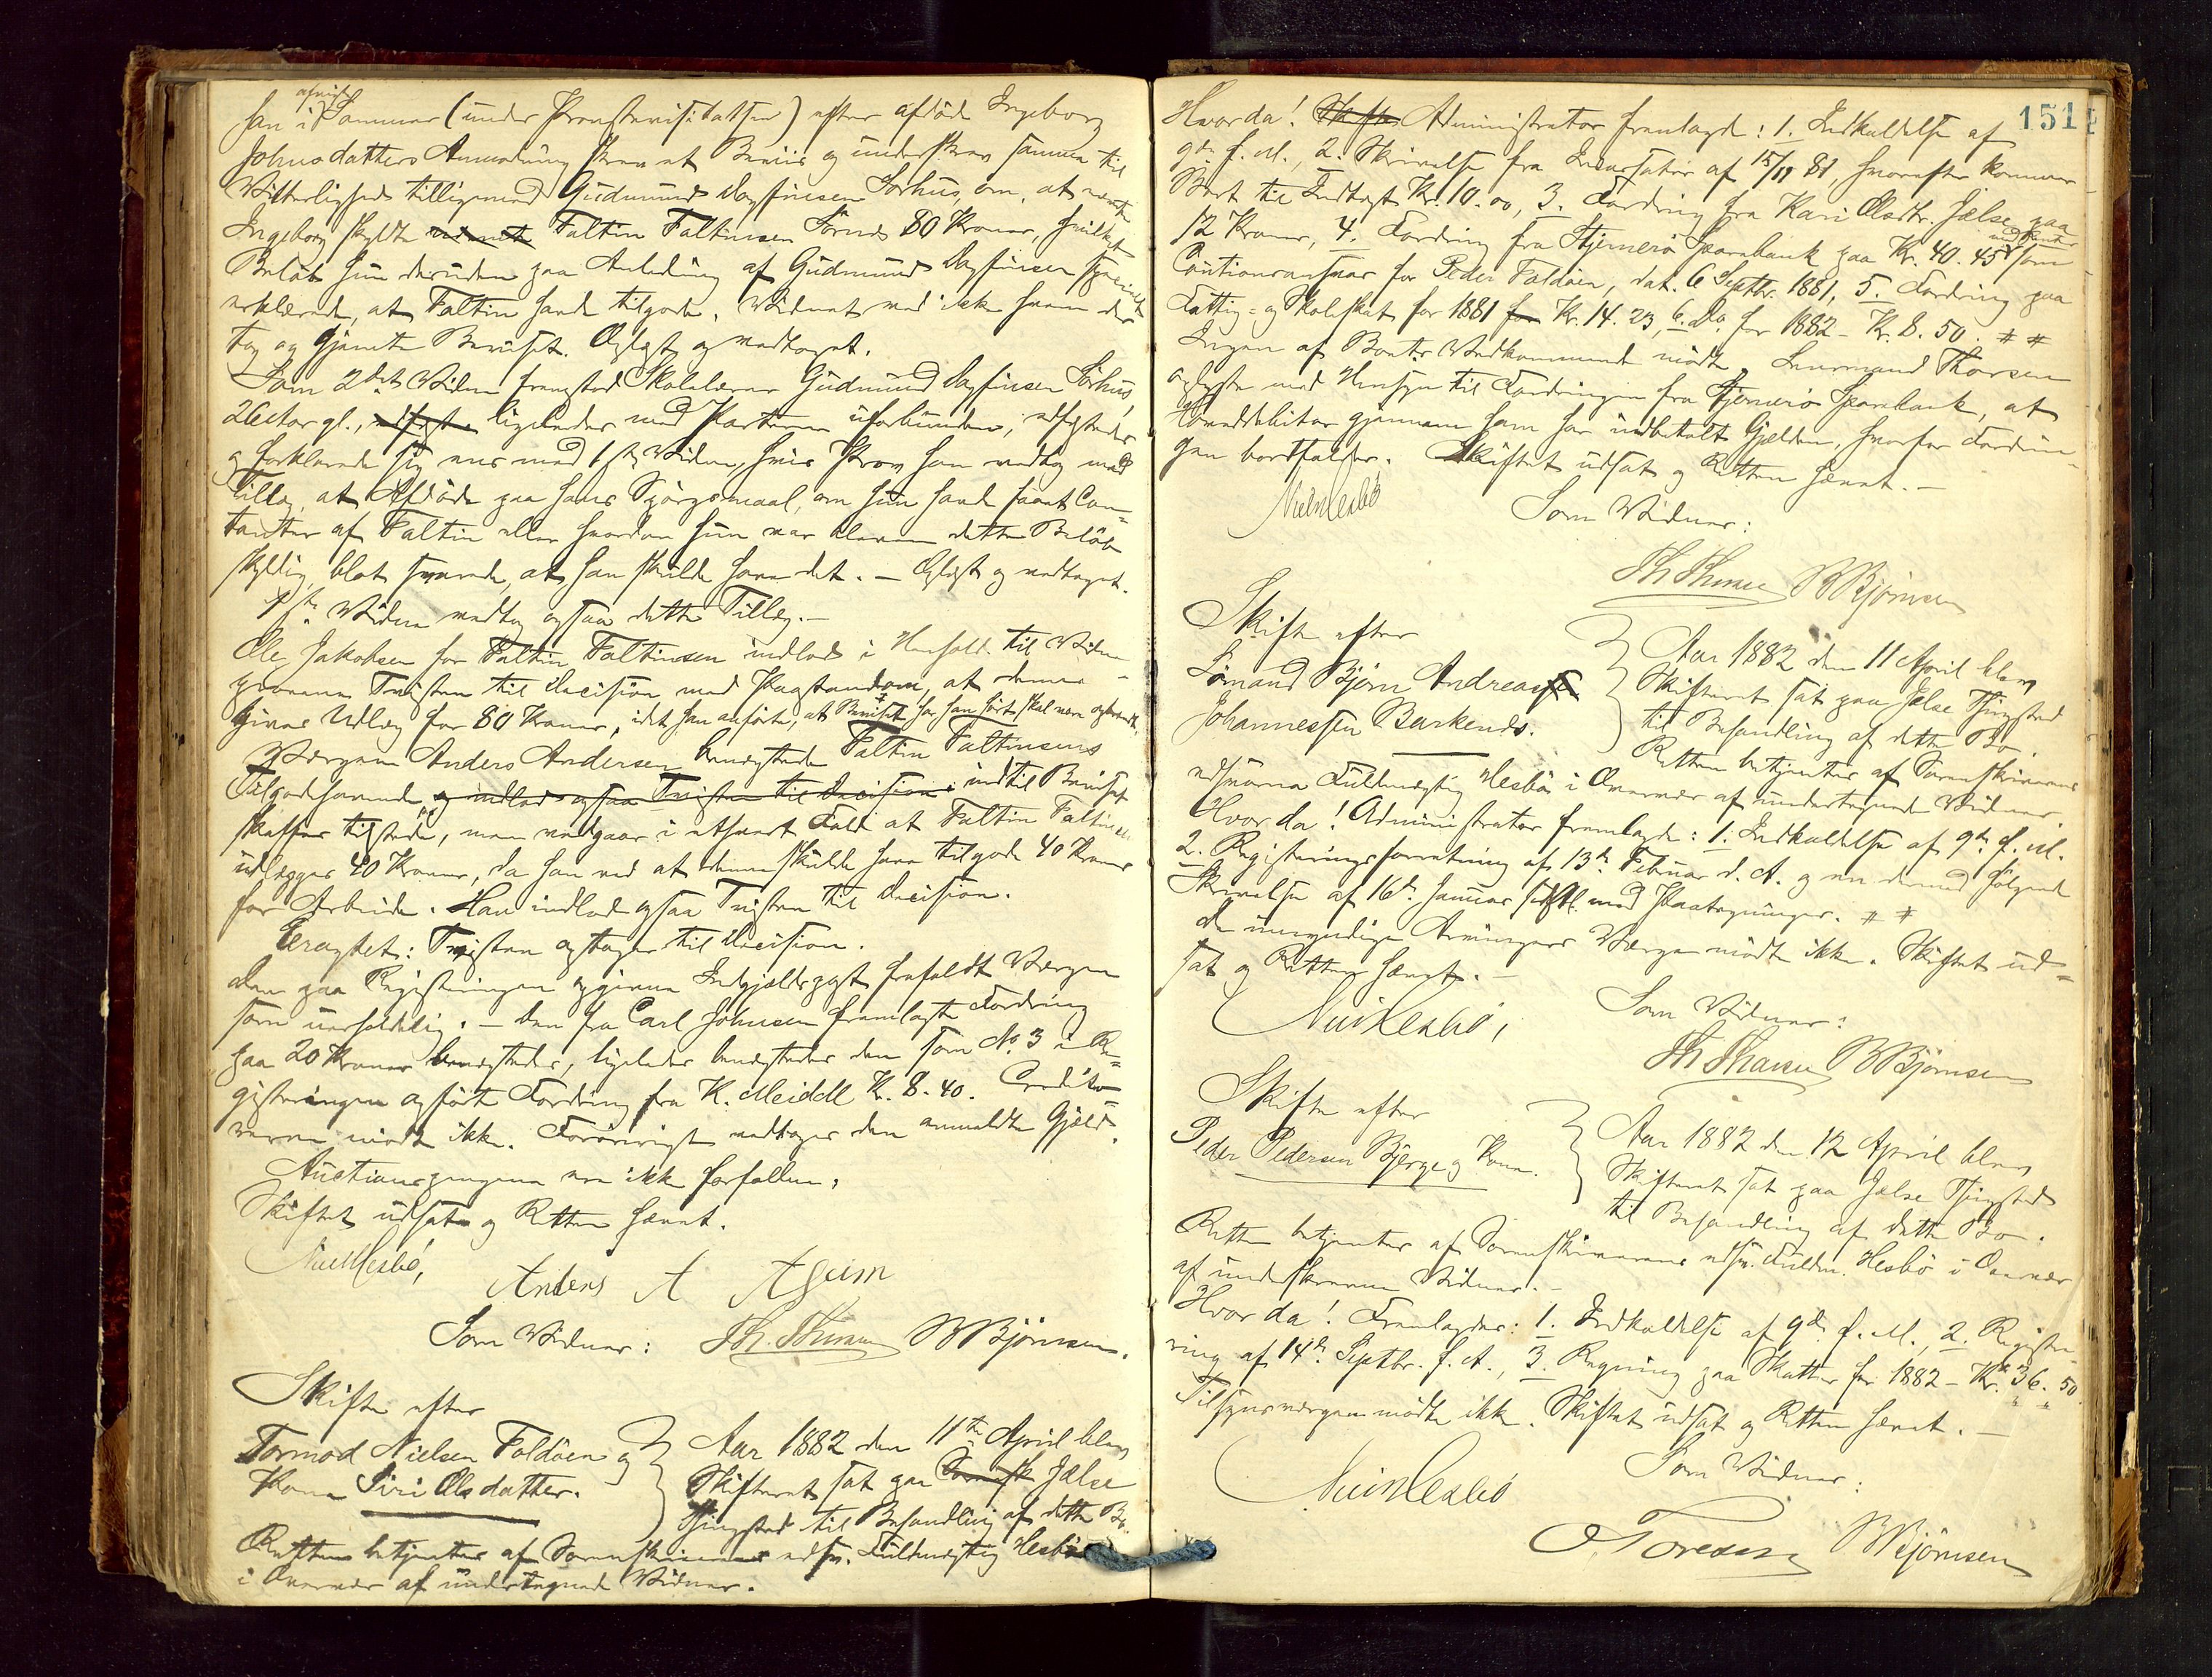 han i Sommer (under Provstevisitatsen) efter afdöde Ingeborg
Johnsdatters Anmodning skrev et Beviis og underskrev samme til
Vitterlighed tilligemed Gudmund Dagfinsen Sörhus, om, at nævnte
Ingeborg skyldte Faltin Faltinsen Förnes 80 Kroner, hvilket
Belöb hun desuden paa Anledning af Gudmund Dagfinsen specielt
erklærede, at Faltin havde tilgode. Vidnet ved ikke hvem der
tog og gjemte Beviset. Oplæst og vedtaget.
Som 2det Vidne fremstod Skolelærer Gudmund Dagfinsen Sörhus,
26 Aar gl., ligeledes med Parterne uforbunden, edfæstedes
og forklarede sig eens med 1ste Vidne, hvis Prov han vedtog med
Tillæg, at Afdöde paa hans Spörgsmaal, om hun havde faaet Con-
tanter af Faltin eller hvordan hun var bleven dette Belöb
skyldig, blot svarede, at han skulde have det. — Oplæst og vedtaget.
1ste Vidne vedtog ogsaa dette Tillæg. —
Ole Jakobsen for Faltin Faltinsen indlod i Henhold til Vidne-
provene Tvisten til Decision med Paastand om, at denne
gives Udlæg for 80 Kroner, idet han anförte, at Beviset har han hört skal være opbrændt.
Værgen Anders Andersen benægtede Faltin Faltinsens
Tilgodehavende og indlod ogsaa Tvisten til Decision indtil Beviset
skaffes tilstede, men vedgaar i ethvert Fald at Faltin Faltinsen
udlægges 40 Kroner, da han ved at denne skulde have tilgode 40 Kroner
for Arbeide. Han indlod ogsaa Tvisten til Decision.
Eragtet: Tvisten optages til Decision.
Den paa Registeringen opgivne Indgjældspost frafaldt Værgen
som uerholdelig. — Den fra Carl Johnsen fremlagte Fordring
paa 20 Kroner benægtedes, ligeledes benægtedes den som No 3 i Re-
gisteringen opförte Fordring fra K. Meidell Kr. 8.40. Credito-
rerne mödte ikke. Forövrigt vedtoges den anmeldte Gjæld.
Auctionspengene ere ikke forfaldne.
Skiftet udsat og Retten hævet.
Anders A Aheim
Som Vidner: BBjörnsen.
Skifte efter
Tormod Nielsen Foldöen og
Kone Siri Olsdatter.
Aar 1882 den 11te April blev
Skifteret sat paa Jælse
Thingsted til Behandling af dette Bo.
Retten betjentes af Sorenskriverens edsv. Fuldmægtig Hesbö
i Overvær af undertegnede Vidner.
151
Hvorda! Administrator fremlagde: 1. Indkaldelse af
9de f. M., 2. Skrivelse fra af 15/11 81, hvorefter kommer
Boet til Indtægt Kr. 10.00, 3. Fordring fra Kari Olsdtr. Jælse paa
12 Kroner, 4. Fordring fra Stjernerö Sparebank paa Kr. 40.45 som
Cautionsansvar for Peder Foldöen, dat. 6 Septbr. 1881, 5. Fordring paa
Fattig- og Skoleskat for 1881 for Kr. 14.23, 6. Do. for 1882 – Kr. 8.50. # #
Ingen af Boets Vedkommende mödte. Lensmand Thorsen
oplyste med Hensyn til Fordringen fra Stjernerö Sparebank, at
Hoveddebitor gjennem ham har indbetalt Gjælden, hvorfor Fordrin-
gen bortfalder. Skiftet udsat og Retten hævet. —
Som Vidner:
BBjörnsen
Skifte efter
Sömand Björn Andreas
Johannessen Barkenes.
Aar 1882 den 11 April blev
Skifteret sat paa Jælse Thingsted
til Behandling af dette Bo.
Retten betjentes af Sorenskriverens
edsvorne Fuldmægtig Hesbö i Overvær af undertegnede Vidner.
Hvorda! Administrator fremlagde: 1. Indkaldelse af 9de f. M.
2. Registeringsforretning af 13de Februar d. A. og en dermed fölgende
Skrivelse af 16de Januar med Paategninger. # #
De umyndige Arvingers Værge mödte ikke. Skiftet ud-
sat og Retten hævet. —
Som Vidner:
BBjörnsen
Skifte efter
Peder Pedersen Bjerge og Kone.
Aar 1882 den 12 April blev
Skifteret sat paa Jælse Thingsted
til Behandling af dette Bo.
Retten betjentes af Sorenskriverens edsv. Fuldm. Hesbö i Overvær
af underskrevne Vidner. —
Hvorda! Fremlagdes: 1. Indkaldelse af 9de f. M., 2. Registe-
ring af 14de Septbr. f. A., 3. Regning paa Skatter for 1882 – Kr. 36.50
Tilsynsværgen mödte ikke. Skiftet udsat og Retten hævet. —
Som Vidner:
BBjörnsen